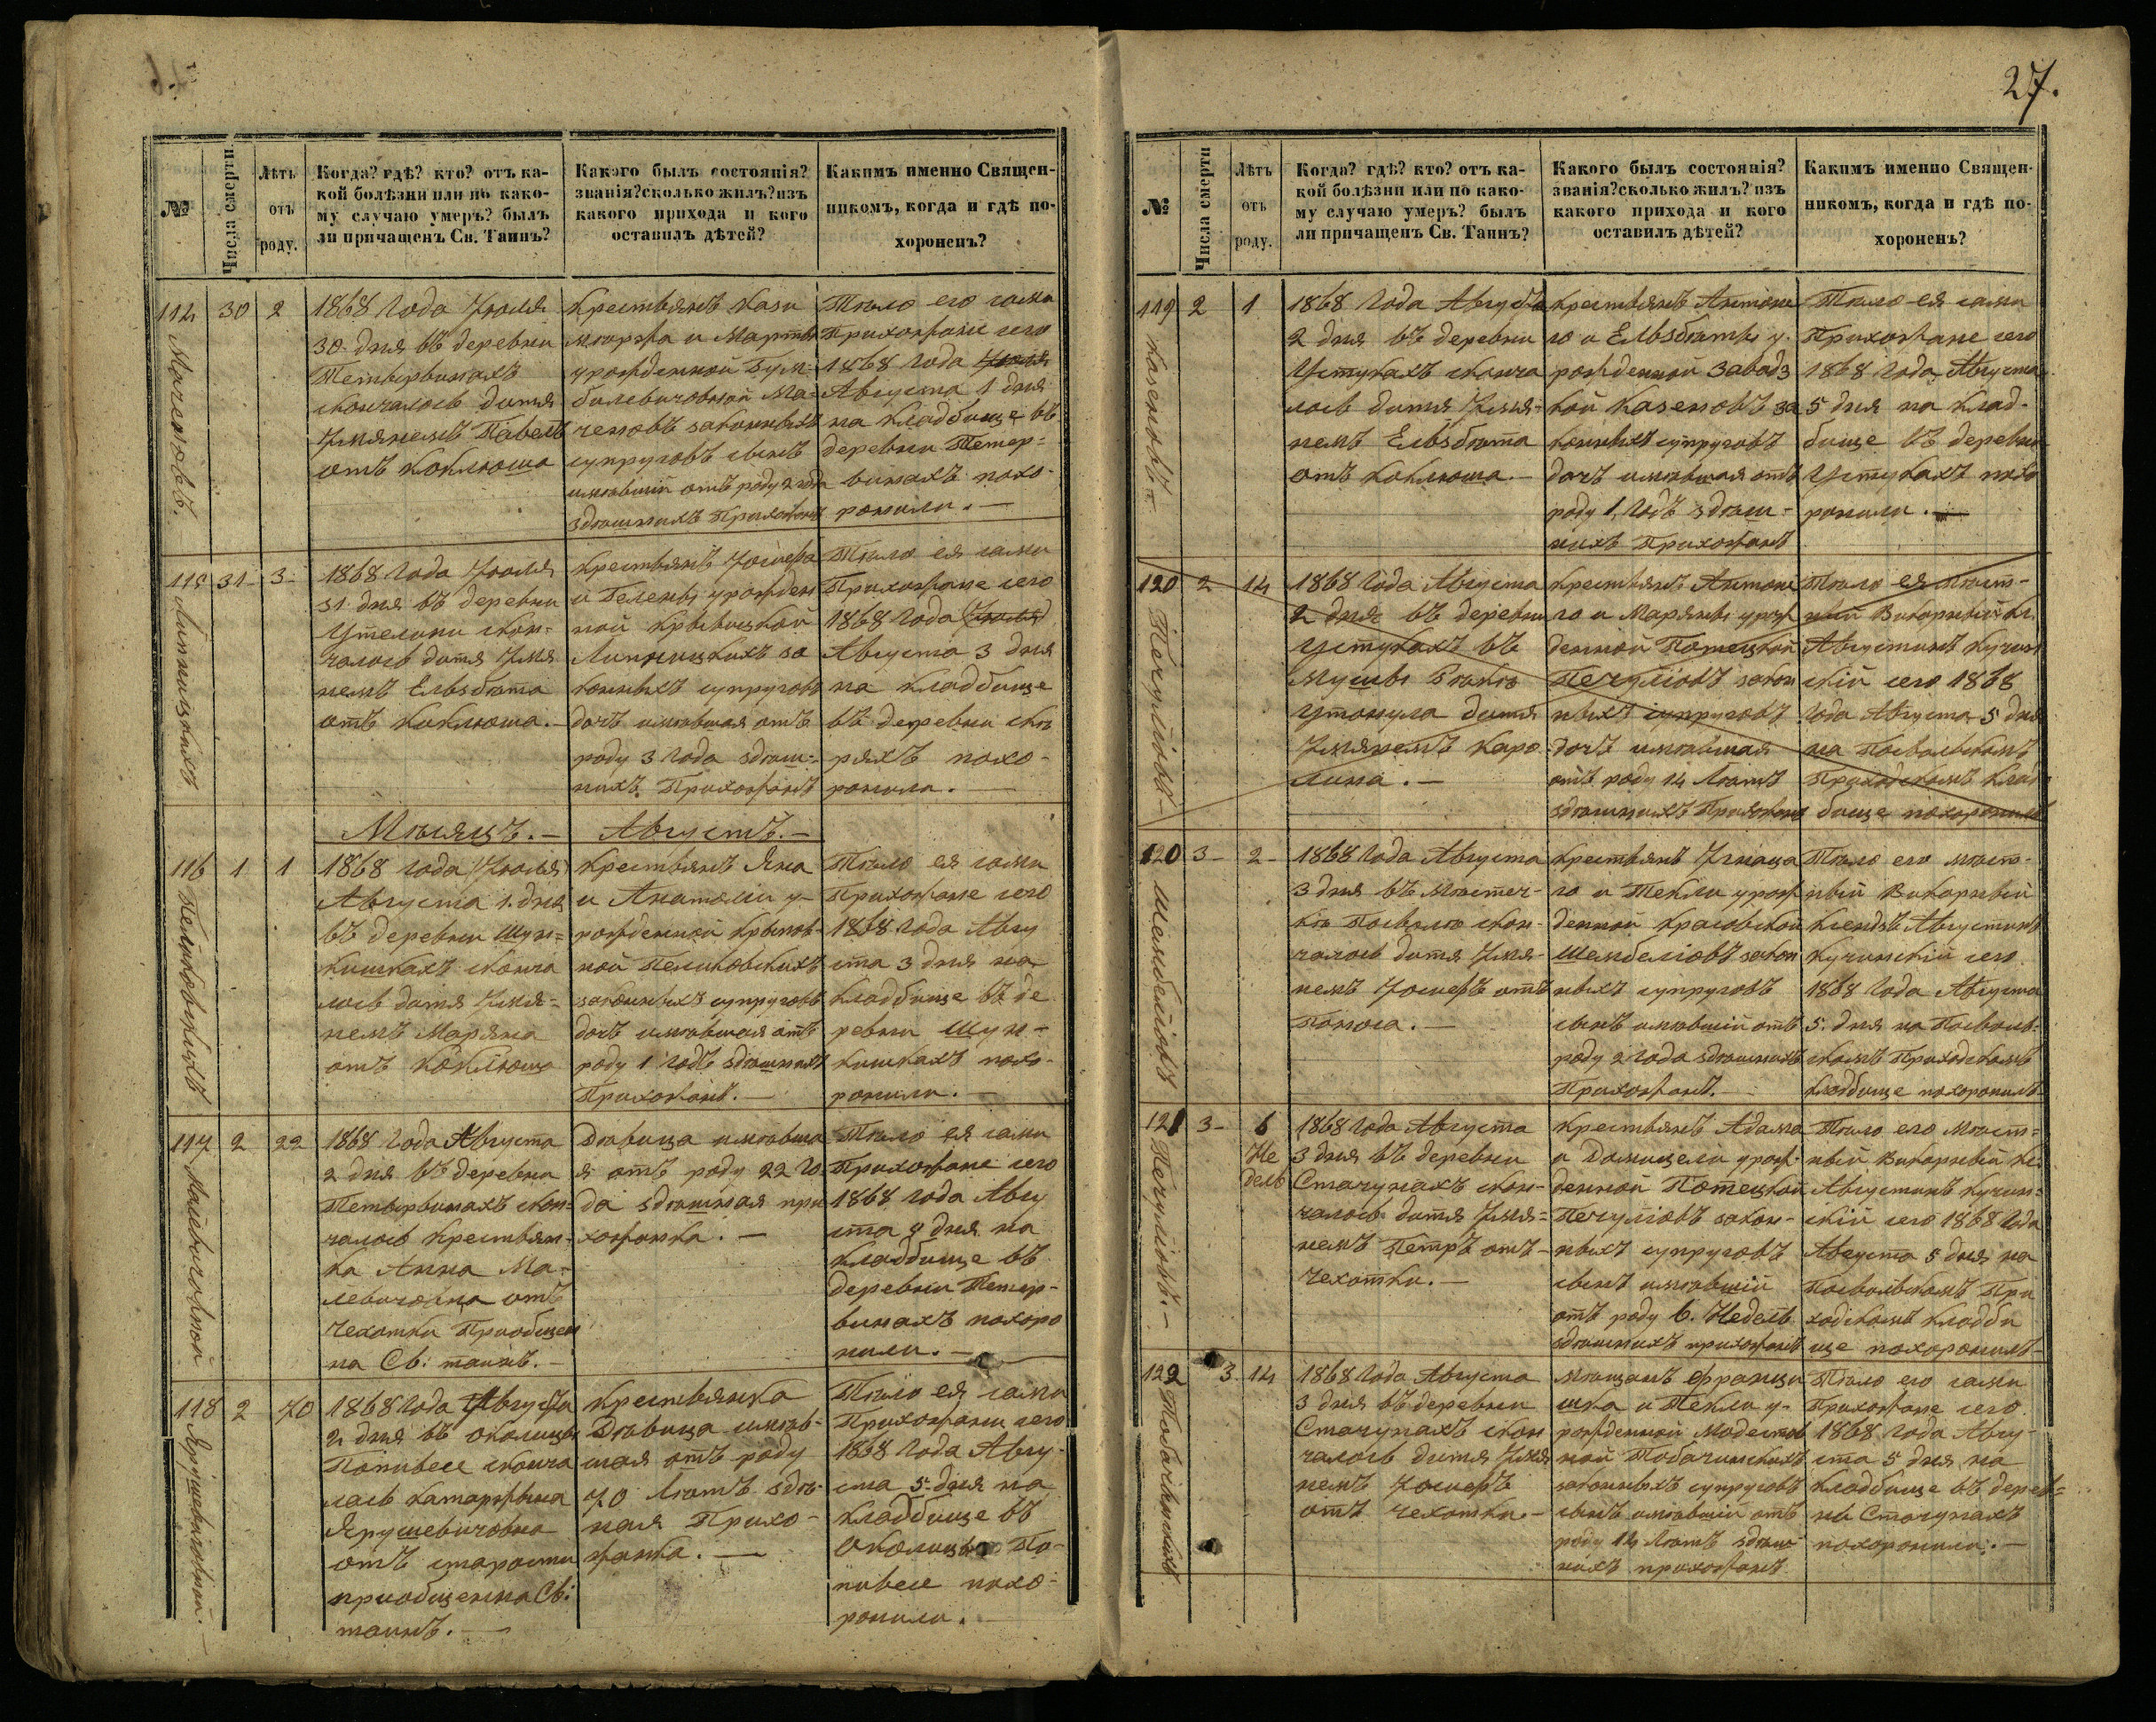 27.
№
Числа смерти
Лѣтъ
отъ
роду.
Когда? гдѣ? кто? отъ ка-
кой болѣзни или по како-
му случаю умеръ? былъ
ли причащенъ Св. Таинъ?
Какого былъ состоянія?
званія? сколько жилъ? изъ
какого прихода и кого
оставилъ дѣтей?
Какимъ именно Священ-
никомъ, когда и гдѣ по-
хороненъ?
114
30
2
1868 Года Іюля
30 дня въ деревни
скончалось дитя
Имянемъ Павелъ
отъ Коклюша
Крестьянъ Кази
мѣржа и Марты
урожденной Бум-
билевичовной Ма-
ченовъ законныхъ
супруговъ сынъ
имѣвшій отъ роду 2 года
здѣшнихъ Прихожанъ
Тѣло его сами
Прихожане сего
1868 года Іюля
Августа 1 дня
на кладбище въ
деревни Петер-
винахъ похо-
ронили.—
115
31
3
Липницкихъ
1868 Года Іюля
31 дня въ деревни
скон-
чалось дитя Имя
немъ Ельзбѣта
отъ Коклюша.—
Крестьянъ Іосифа
и Гелены урожден
ной Крывицкой
Липницкихъ за
конныхъ супруговъ
дочь имѣвшая отъ
роду 3 Года здѣш-
нихъ Прихожанъ
Тѣло ея сами
Прихожане сего
1868 Года Іюля
Августа 3 дня
на кладбище
въ деревни Ско
ряхъ похо-
ронили.—
Мѣсяцъ.— Августъ.—
116
1
1
1868 года Іюля
Августа 1 дня
въ деревни Шун-
кишкахъ сконча
лось дитя Имя-
немъ Маряна
отъ Коклюша
Крестьянъ Яна
и Анатоли у-
рожденной
законныхъ супруговъ
дочь имѣвшая отъ
роду 1 годъ здѣшнихъ
Прихожанъ.—
Тѣло ея сами
Прихожане сего
1868 Года Авгу
ста 3 дня на
кладбище въ де
ревни Шун-
кишкахъ похо-
ронили.—
117
2
22
1868 Года Августа
2 дня въ деревни
Петырвинахъ скон-
чалось Крестьян-
ка Анна Ма-
левичовна отъ
Чехотки Приобщен
на Св: таинъ.—
Дѣвица имѣвша
я отъ роду 22 го
да здѣшная при
хожанка.—
Тѣло ея сами
Прихожане сего
1868 года Авгу
ста 4 дня на
кладбище въ
деревни Петер-
винахъ похоро
нили.—
118
2
70
1868 Года Августа
2 дня въ околицы
Попивесе сконча
лась Катаржина
Ярушевичовна
отъ старости
приобщенна Св:
таинъ.—
Крестьянка
Дѣвица имѣв-
шая отъ роду
70 Лѣтъ здѣ-
ная Прихо-
жанка.—
Тѣло ея сами
Прихожани сего
1868 Года Авгу-
ста 5 дня на
кладбище въ
Околицы По-
пивесе похо-
ронили.—
№
Числа смерти
Лѣтъ
отъ
роду.
Когда? гдѣ? кто? отъ ка-
кой болѣзни или по како-
му случаю умеръ? былъ
ли причащенъ Св. Таинъ?
Какого былъ состоянія?
званія? сколько жилъ? изъ
какого прихода и кого
оставилъ дѣтей?
Какимъ именно Священ-
никомъ, когда и гдѣ по-
хороненъ?
119
2
1
Казеновъ
1868 Года Августа
2 дня въ деревни
Устукахъ сконча
лось дитя Имя-
немъ Ельзбѣта
отъ Коклюша.—
Крестьянъ Антоне
го и Ельзбѣты у-
рожденной Завадз
кой Казеновъ за
конныхъ супруговъ
дочь имѣвшая отъ
роду 1 Годъ здѣш-
нихъ Прихожанъ
Тѣло ея сами
Прихожане сего
1868 Года Августа
5 дня на клад-
бище въ деревни
Устукахъ похо
ронили.—
120
2
14
1868 Года Августа
2 дня въ деревни
Устукахъ въ
Мушы
Утонула дитя
Имянемъ Каро
лина.—
Крестьянъ Антоне
го и Маряны урож
денной Потецкой
Печуліовъ закон
ныхъ супруговъ
дочь имѣвшая
отъ роду 14 Лѣтъ
здѣшнихъ Прихожанъ
Тѣло ея Мѣст-
ный Викарный Кс.
Августинъ Кучин
скій сего 1868
Года Августа 5 дня
на Посвольскомъ
Приходскомъ Клад
бище похоронилъ
120
3
2
Шембеліовъ
1868 Года Августа
3 дня въ Мѣстеч-
кѣ Посволю скон-
чалось дитя Имя-
немъ Іосифъ отъ
Поноса.—
Крестьянъ Игнаца
го и Текли урож
денной Красовской
Шембеліовъ закон
ныхъ супруговъ
сынъ имѣвшій отъ
роду 2 Года здѣшнихъ
Прихожанъ.—
Тѣло его мѣст-
ный Викарный
Ксендзъ Августинъ
Кучинскій сего
1868 Года Августа
5 дня на Посволь-
скомъ Приходскомъ
Кладбище похоронилъ
121
3
6
Не
дель
Печуліовъ.—
1868 Года Августа
3 дня въ деревни
Стачунахъ скон-
чалось дитя Имя-
немъ Петръ отъ
Чехотки.—
Крестьянъ Адама
и Домицели урож
денной Потецкой
Печуліовъ закон-
ныхъ супруговъ
сынъ имѣвшій
отъ роду 6. Недель
здѣшнихъ прихожанъ
Тѣло его Мѣст-
ный Викарный Кс.
Августинъ Кучин-
скій сего 1868 Года
Августа 5 дня на
Посвольскомъ При
ходскомъ Кладби
ще похоронилъ
122
3
14
1868 Года Августа
3 дня въ деревни
Стачунахъ скон
чалось дитя Имя
немъ Іосифъ
отъ чехотки.—
Мѣщанъ Францы
шка и Текли у-
рожденной Модестов
ной Тобачинскихъ
законныхъ супруговъ
сынъ имѣвшій отъ
роду 14 Лѣтъ здѣш
нихъ прихожанъ
Тѣло его сами
Прихожане сего
1868 года Авгу-
ста 5 дня на
кладбище въ дерев-
ни Стачунахъ
похоронили.—